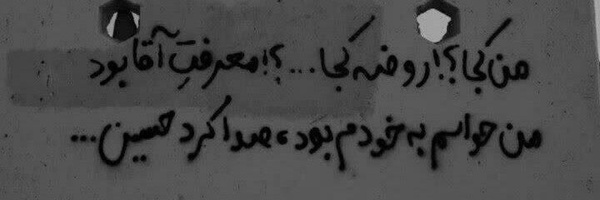 من کجا؟! روضه کجا...؟! معرفتِ آقا بود
من حواسم به خودم بود، صدا کرد حسین...